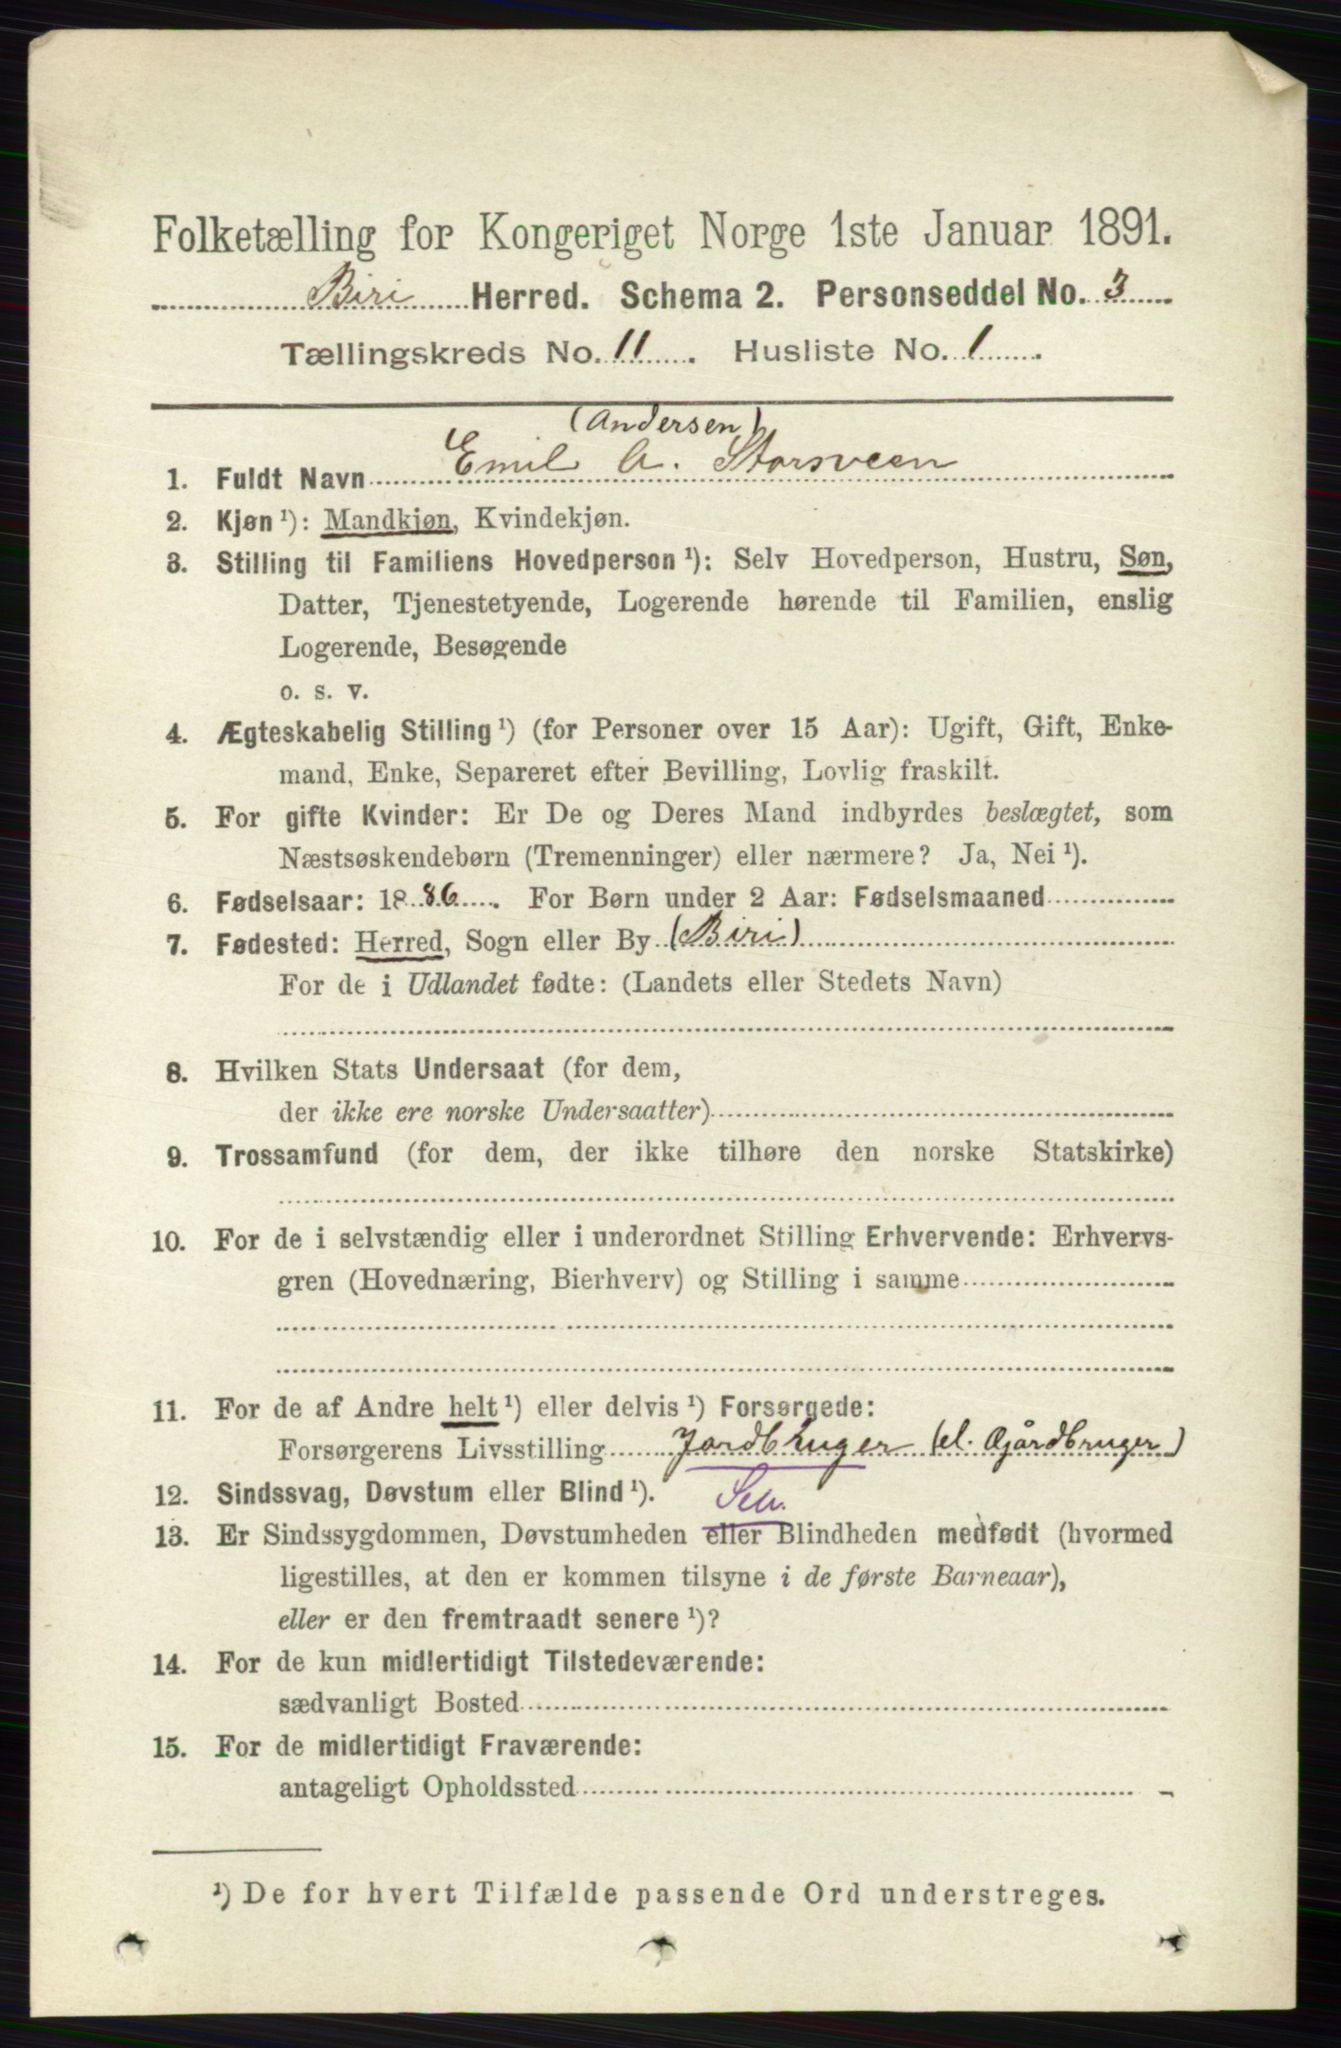 Folketælling for Kongeriget Norge 1ste Januar 1891.
Biri Herred. Schema 2. Personseddel No. 3
Tællingskreds No. 11. Husliste No. 1.
(Andersen)
1. Fuldt Navn Emil A. Storsveen
2. Kjøn ¹): Mandkjøn, Kvindekjøn.
3. Stilling til Familiens Hovedperson ¹): Selv Hovedperson, Hustru, Søn,
Datter, Tjenestetyende, Logerende hørende til Familien, enslig
Logerende, Besøgende
o. s. v.
4. Ægteskabelig Stilling ¹) (for Personer over 15 Aar): Ugift, Gift, Enke-
mand, Enke, Separeret efter Bevilling, Lovlig fraskilt.
5. For gifte Kvinder: Er De og Deres Mand indbyrdes beslægtet, som
Næstsøskendebørn (Tremenninger) eller nærmere? Ja, Nei ¹).
6. Fødselsaar: 1886. For Børn under 2 Aar: Fødselsmaaned
7. Fødested: Herred, Sogn eller By (Biri)
For de i Udlandet fødte: (Landets eller Stedets Navn)
8. Hvilken Stats Undersaat (for dem,
der ikke ere norske Undersaatter)
9. Trossamfund (for dem, der ikke tilhøre den norske Statskirke)
10. For de i selvstændig eller i underordnet Stilling Erhvervende: Erhvervs-
gren (Hovednæring, Bierhverv) og Stilling i samme
11. For de af Andre helt ¹) eller delvis ¹) Forsørgede:
Forsørgerens Livsstilling Jordbruger (el. Gjårdbruger)
12. Sindssvag, Døvstum eller Blind ¹). Selv.
13. Er Sindssygdommen, Døvstumheden eller Blindheden medfødt (hvormed
ligestilles, at den er kommen tilsyne i de første Barneaar),
eller er den fremtraadt senere ¹)?
14. For de kun midlertidigt Tilstedeværende:
sædvanligt Bosted
15. For de midlertidigt Fraværende:
antageligt Opholdssted
¹) De for hvert Tilfælde passende Ord understreges.